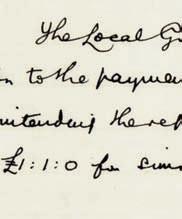 The Local G
n to the paymen
mitending the re
£1:1:0 for sim